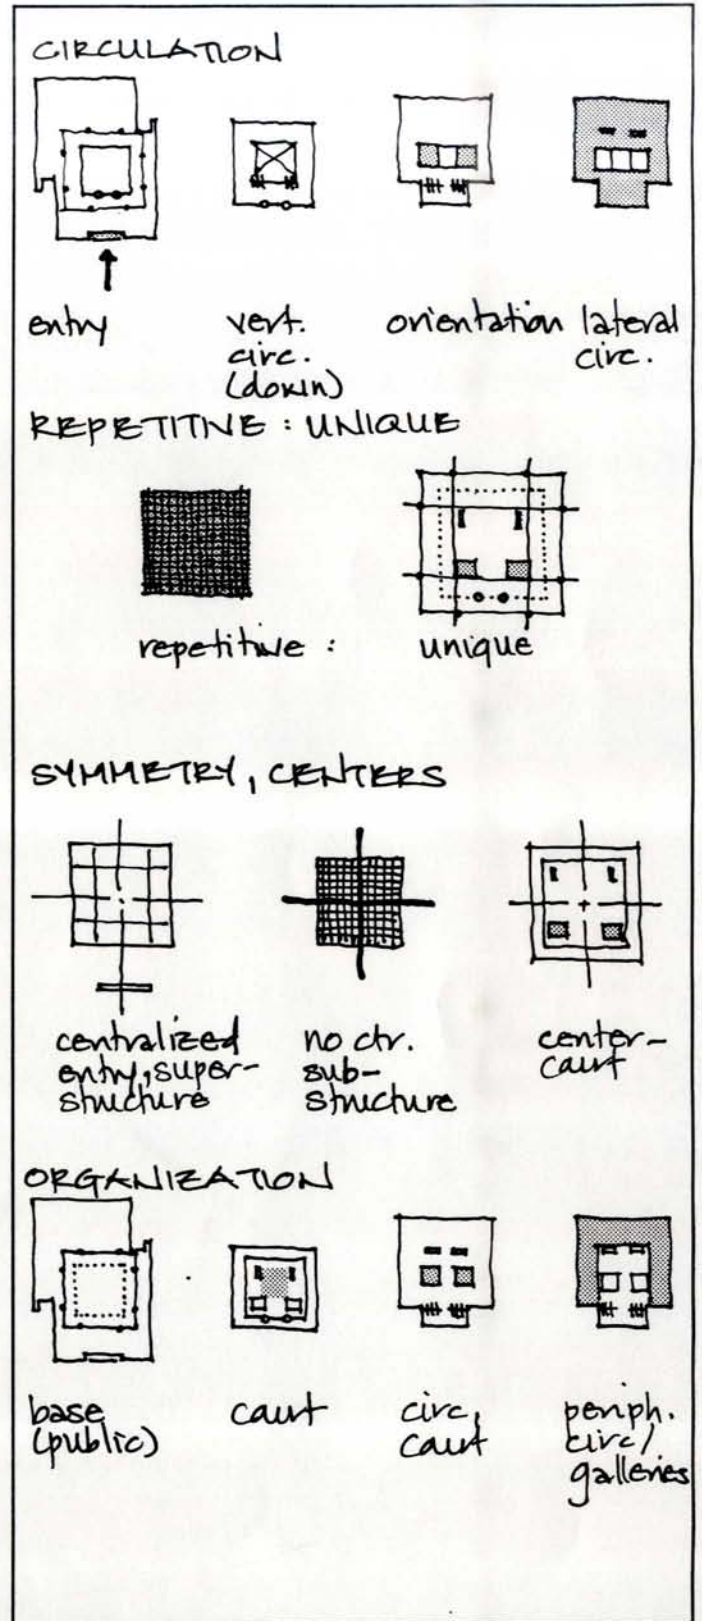 CIRCULATION
entry
vert.
circ.
(down)
orientation
lateral
circ.
REPETITIVE : UNIQUE
repetitive :
unique
SYMMETRY, CENTERS
centralized
entry, super-
structure
no ctr.
sub-
structure
center-
court
ORGANIZATION
base
(public)
court
circ,
court
periph.
circ/
galleries